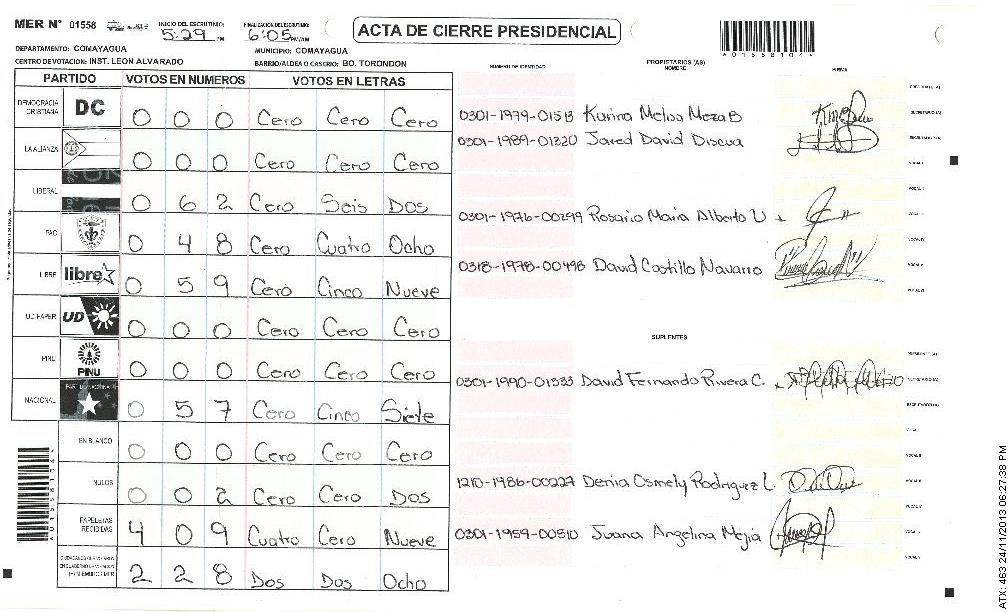 MER N° 01558 INICIO DEL ESCRUTINIO: 5:29 PM FINALIZACION DEL ESCRUTINIO: 6:05 PM/AM ACTA DE CIERRE PRESIDENCIAL
DEPARTAMENTO: COMAYAGUA MUNICIPIO: COMAYAGUA
CENTRO DE VOTACION: INST. LEON ALVARADO BARRIO/ALDEA O CASERIO: BO. TORONDON
A01558104
PARTIDO VOTOS EN NUMEROS VOTOS EN LETRAS
NUMERO DE IDENTIDAD PROPIETARIOS (AS) NOMBRE FIRMA
DEMOCRACIA CRISTIANA DC 0 0 0 Cero Cero Cero
LA ALIANZA 0 0 0 Cero Cero Cero
LIBERAL 0 6 2 Cero Seis Dos
PAC 0 4 8 Cero Cuatro Ocho
LIBRE libre 0 5 9 Cero Cinco Nueve
UD-FAPER UD 0 0 0 Cero Cero Cero
PINU PINU 0 0 0 Cero Cero Cero
NACIONAL 0 5 7 Cero Cinco Siete
EN BLANCO 0 0 0 Cero Cero Cero
NULOS 0 0 2 Cero Cero Dos
PAPELETAS RECIBIDAS 4 0 9 Cuatro Cero Nueve
2 2 8 Dos Dos Ocho
0301-1979-01513 Karina Melisa Meza B
0301-1989-01320 Jared David Discua
0301-1976-00299 Rosario Maria Alberto U
0318-1978-00498 David Castillo Navarro
SUPLENTES
0301-1990-01533 David Fernando Rivera C.
1210-1986-00227 Denia Osmely Rodriguez L.
0301-1959-00510 Juana Angelina Mejia
ATX: 463 24/11/2013 06:27:38 PM